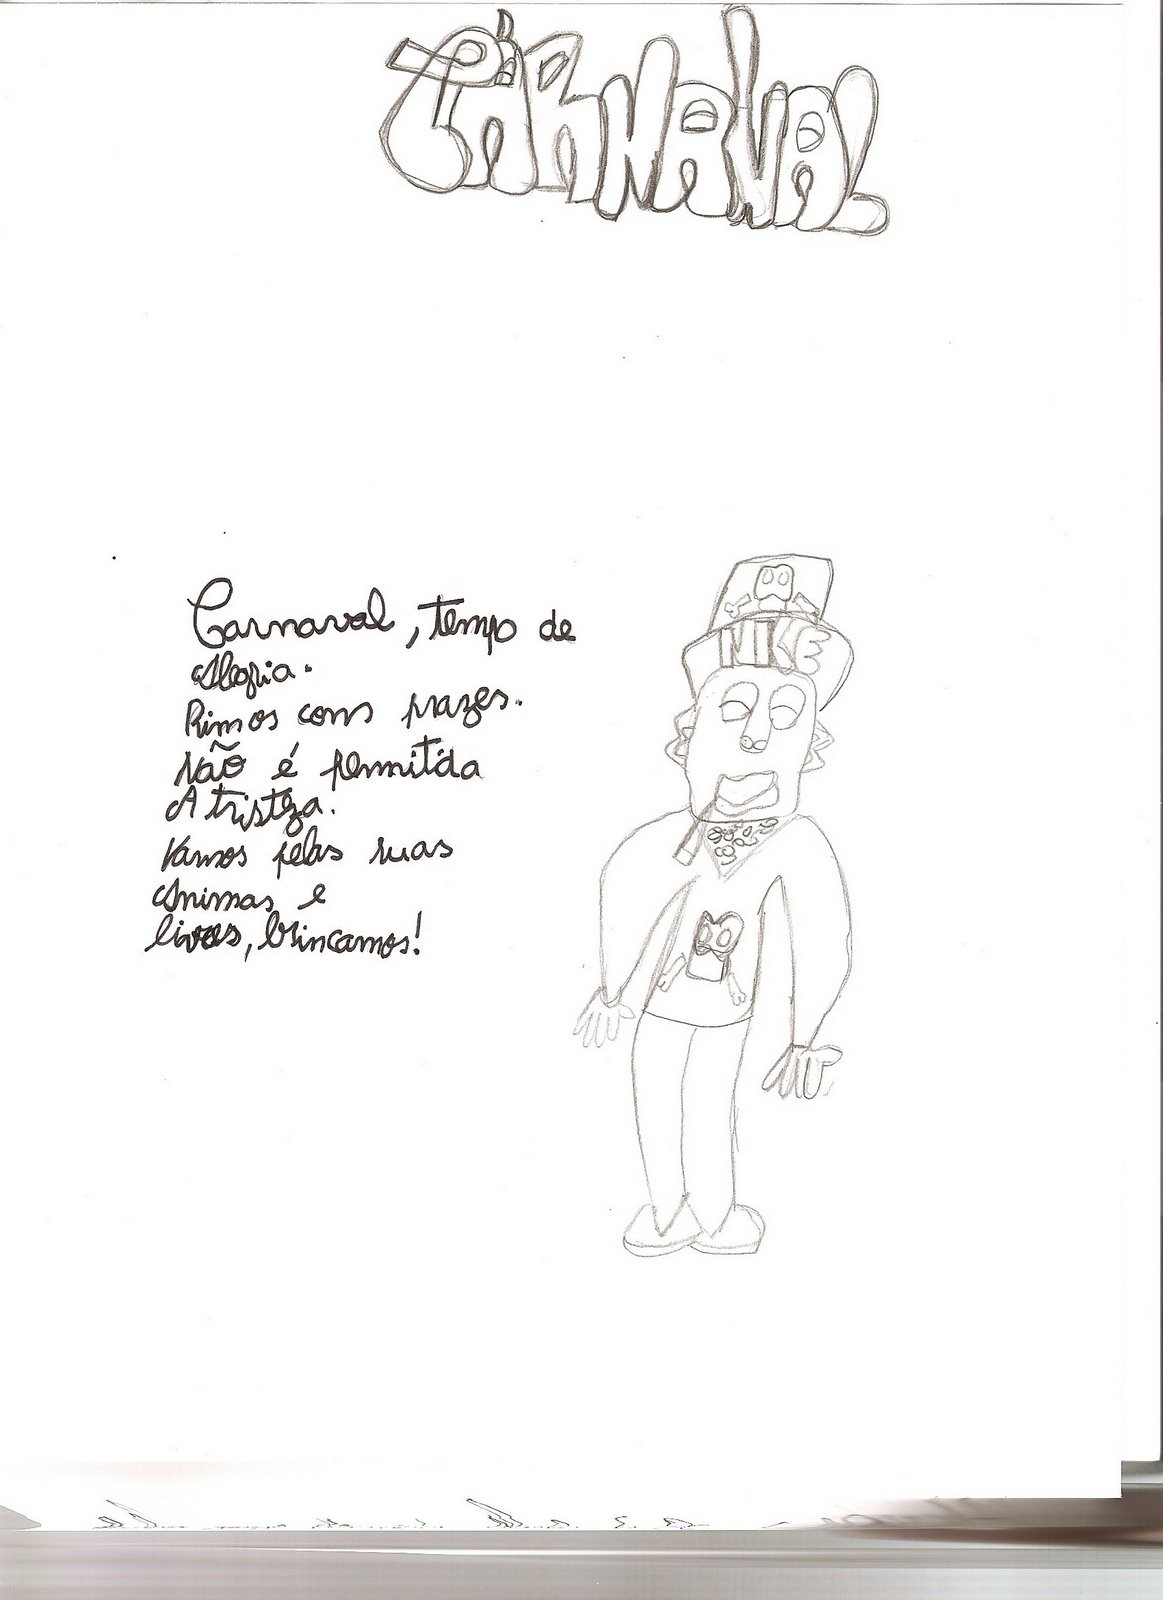 CARNAVAL
Carnaval, tempo de
Alegria.
Rimos com prazer.
Não é permitida
A tristeza.
Vamos pelas ruas
Animas e
livres, brincamos!
NIKE